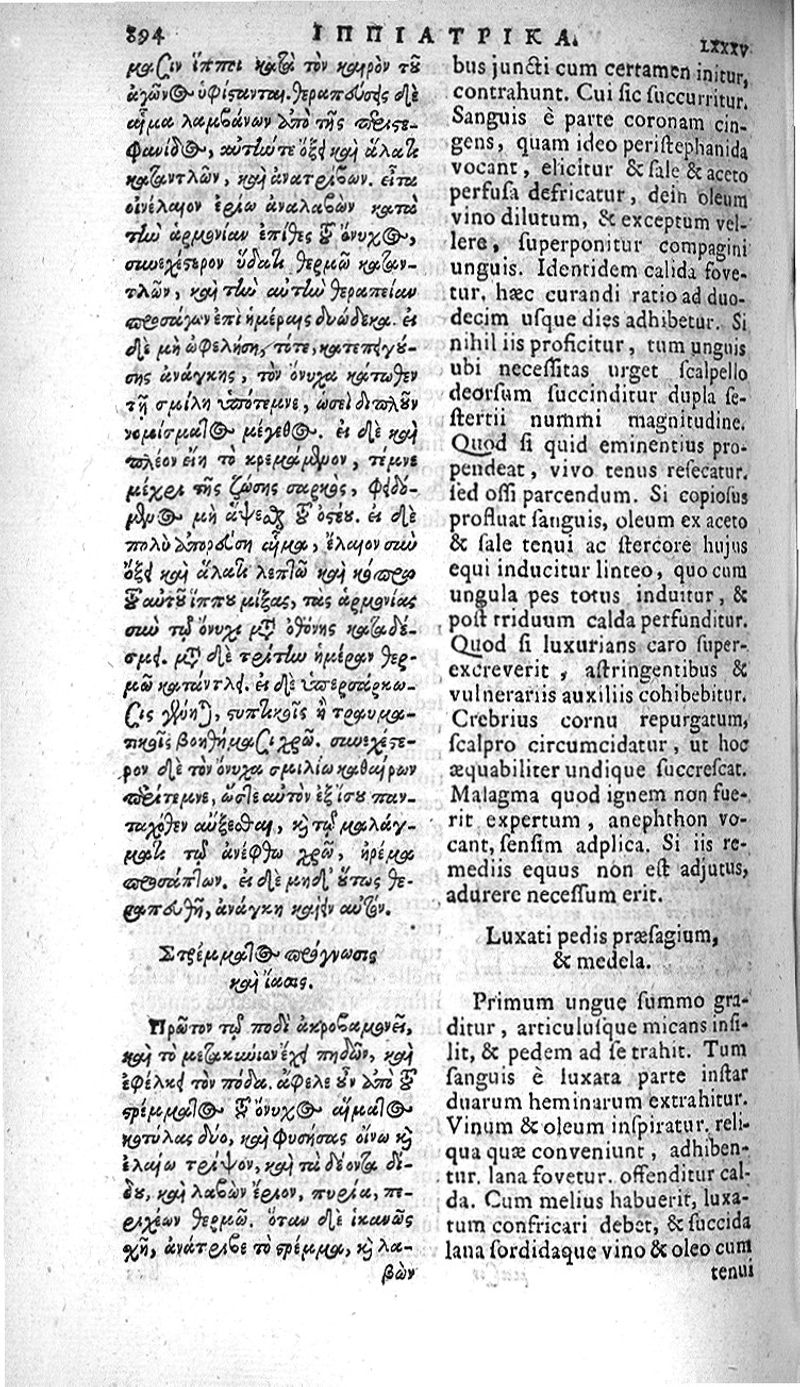 394
ΙΠΠΙΑΤΡΙΚΑ.
LXXXV
μασιν ἵπποι κατὰ τὸν καιρὸν τοῦ
ἀγῶνος ὑφίστανται. θεραπεύσεις δὲ
αἷμα λαμβάνων ἀπὸ τῆς περιστε-
φανίδος, αὐτίκα τε ὄξει καὶ ἅλατι
καταντλῶν, καὶ ἀνατρίβων. εἶτα
οἰνέλαιον ἐρίῳ ἀναλαβὼν κατὰ
τὴν ἁρμονίαν ἐπίθες τοῦ ὄνυχος,
συνεχέστερον ὕδατι θερμῷ καταν-
τλῶν, καὶ τὴν αὐτὴν θεραπείαν
προσάγων ἐπὶ ἡμέραις δυώδεκα. εἰ
δὲ μὴ ὠφελήσῃ, τότε, κατεπιγού-
σης ἀνάγκης, τὸν ὄνυχα κάτωθεν
τῇ σμίλῃ ὑπότεμνε, ὡσεὶ διπλοῦν
νομίσματος μέγεθος. εἰ δὲ καὶ
πλέον εἴη τὸ κρεμάμενον, τέμνε
μέχρι τῆς ζώσης σαρκὸς, φειδό-
μενος μὴ ἅψεσθαι τοῦ ὀστέου. εἰ δὲ
πολὺ ἀπορεύσῃ αἷμα, ἔλαιον σὺν
ὄξει καὶ ἅλατι λεπτῷ καὶ κόπρῳ
τοῦ αὐτοῦ ἵππου μίξας, τὰς ἁρμονίας
σὺν τῷ ὄνυχι μετὰ ὀθόνης καταδέ-
σμει. μετὰ δὲ τρίτην ἡμέραν θερ-
μῷ κατάντλει. εἰ δὲ ὑπερσάρκω-
σις γένηται, στυπτικοῖς ἢ τραυμα-
τικοῖς βοηθήμασι χρῶ. συνεχέστε-
ρον δὲ τὸν ὄνυχα σμιλίῳ καθαίρων
περίτεμνε, ὥστε αὐτὸν ἐξ ἴσου παν-
ταχόθεν αὔξεσθαι, καὶ τῷ μαλάγ-
ματι τῷ ἀνέφθῳ χρῶ, ἠρέμα
προσάπτων. εἰ δὲ μηδ' οὕτως θε-
ραπευθῇ, ἀνάγκη καίειν αὐτόν.
Στρέμματος πρόγνωσις
καὶ ἴασις.
Πρῶτον τῷ ποδὶ ἀκροβαμονεῖ,
καὶ τὸ μεσακύνιον ἔχει πηδῶν, καὶ
ἐφέλκει τὸν πόδα. ἄφελε οὖν ἀπὸ τοῦ
στρέμματος τοῦ ὄνυχος αἵματος
κοτύλας δύο, καὶ φυσήσας οἴνῳ καὶ
ἐλαίῳ τρίψον, καὶ τὰ δέοντα δί-
δου, καὶ λαβὼν ἔριον, πυρία, πε-
ριχέων θερμῷ. ὅταν δὲ ἱκανῶς
σχῇ, ἀνάτριβε τὸ στρέμμα, καὶ λα-
βὼν
bus juncti cum certamen initur,
contrahunt. Cui sic succurritur.
Sanguis è parte coronam cin-
gens, quam ideo peristephanida
vocant, elicitur & sale & aceto
perfusa defricatur, dein oleum
vino dilutum, & exceptum vel-
lere, superponitur compagini
unguis. Identidem calida fove-
tur. hæc curandi ratio ad duo-
decim usque dies adhibetur. Si
nihil iis proficitur, tum unguis
ubi necessitas urget scalpello
deorsum succinditur dupla se-
stertii nummi magnitudine.
Quod si quid eminentius pro-
pendeat, vivo tenus resecatur.
sed ossi parcendum. Si copiosus
profluat sanguis, oleum ex aceto
& sale tenui ac stercore hujus
equi inducitur linteo, quo cum
ungula pes totus induitur, &
post triduum calda perfunditur.
Quod si luxurians caro super-
excreverit, astringentibus &
vulnerariis auxiliis cohibebitur.
Crebrius cornu repurgatum,
scalpro circumcidatur, ut hoc
æquabiliter undique succrescat.
Malagma quod ignem non fue-
rit expertum, anephthon vo-
cant, sensim adplica. Si iis re-
mediis equus non est adjutus,
adurere necessum erit.
Luxati pedis præsagium,
& medela.
Primum ungue summo gra-
ditur, articulusque micans insi-
lit, & pedem ad se trahit. Tum
sanguis è luxata parte instar
duarum heminarum extrahitur.
Vinum & oleum inspiratur, reli-
qua quæ conveniunt, adhiben-
tur. lana fovetur. offenditur cal-
da. Cum melius habuerit, luxa-
tum confricari debet, & succida
lana sordidaque vino & oleo cum
tenui